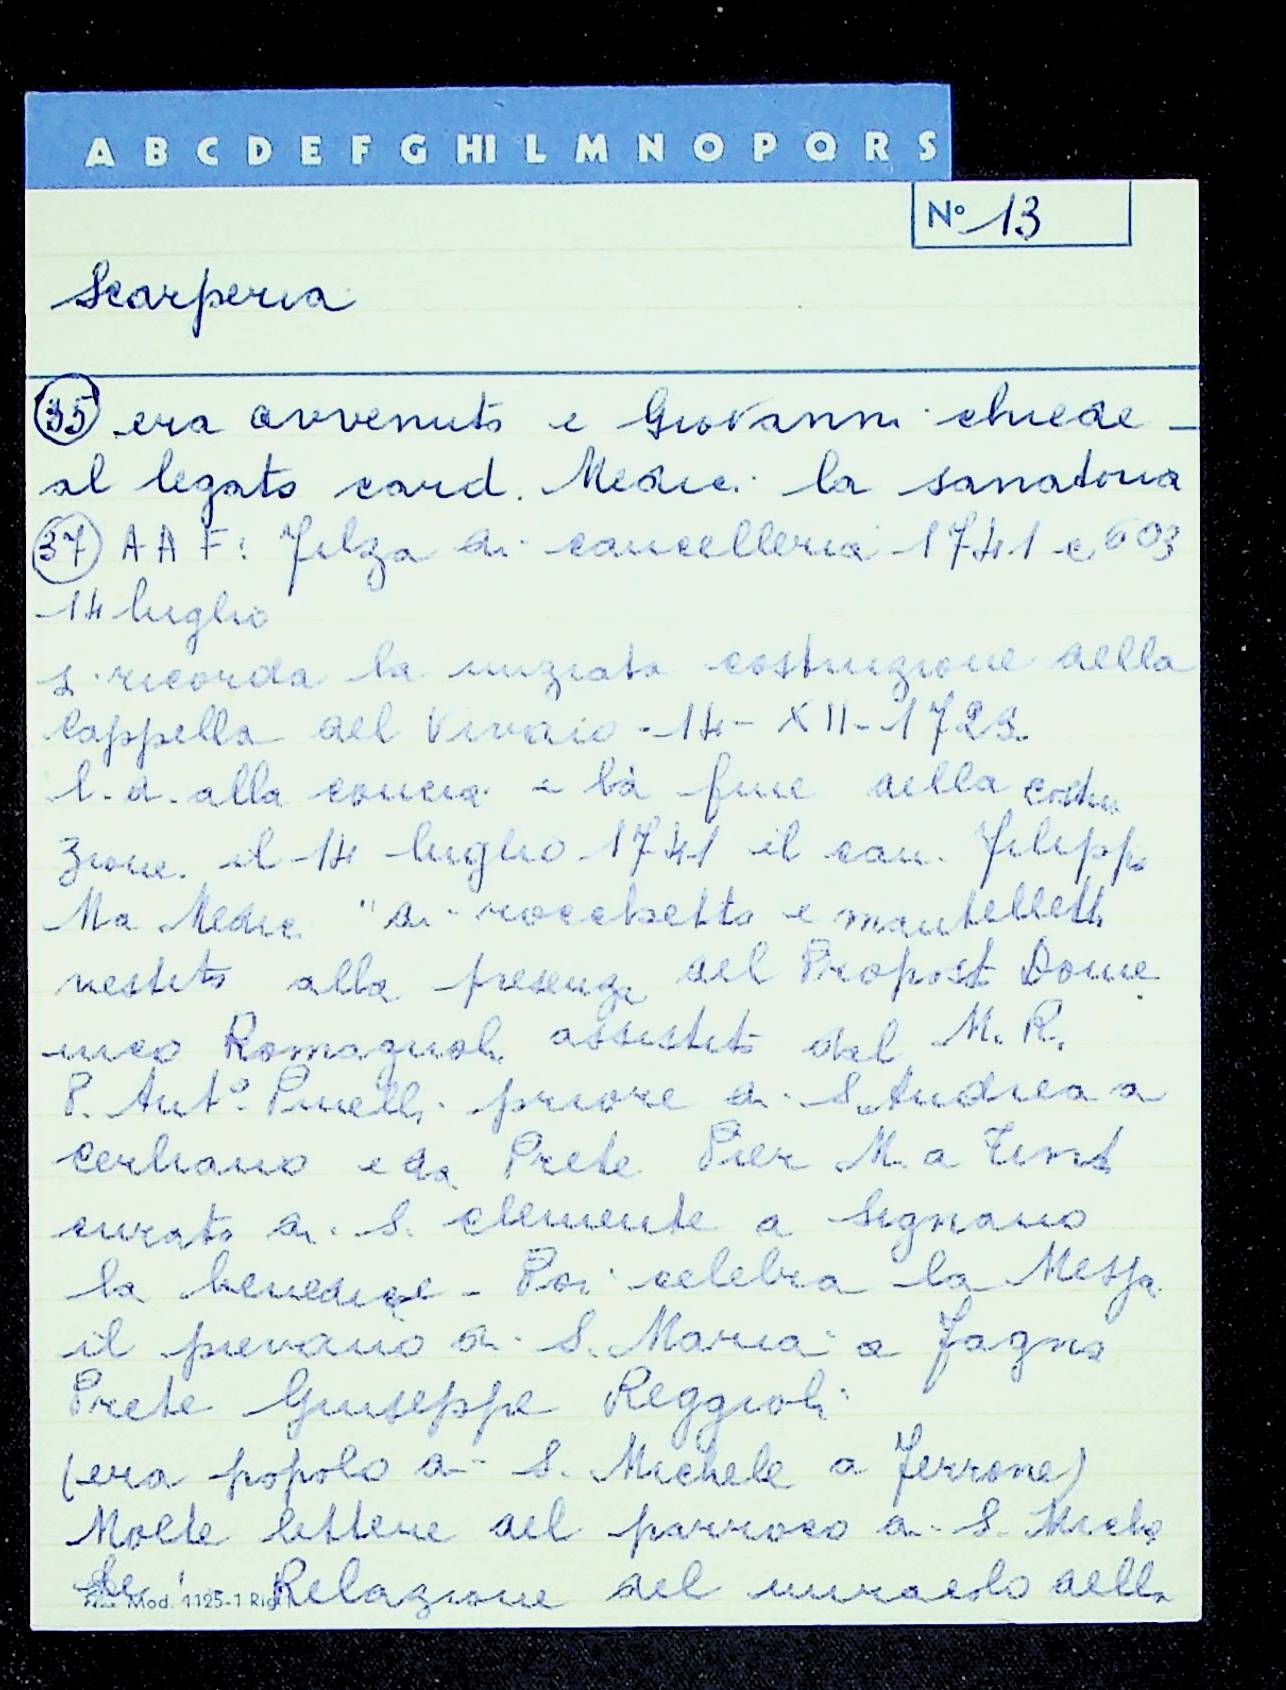 A B C D E F G HI L M N O P Q R S
N° 13
Scarperia
35 era avvenuto e Giovanni chiede
al legato card. Medici la sanatoria
37 A A F: Filza di cancelleria 1741 c. 603
14 luglio
si ricorda la iniziata costruzione della
Cappella del Vivaio 14 - XII - 1725.
l. d. alla concia e la fine della costru
zione. il 14 luglio 1741 il can. Filippo
Ma Medici "di rocchetto e mantelletta
vestito alla presenza del Proposto Dome
nico Romagnoli assistito dal M. R.
P. Ant°. Pinelli priore di S. Andrea a
Cerliano e da Prete Pier M.a Tinti
curato di S. Clemente a Signano
la benedice - Poi celebra la Messa
il pievano di S. Maria a Fagna
Prete Giuseppe Reggioli
(era popolo di S. Michele a Ferrone)
Molte lettere del parroco di S. Miche
le! Relazione del miracolo della
Mod. 1125-1 Rig